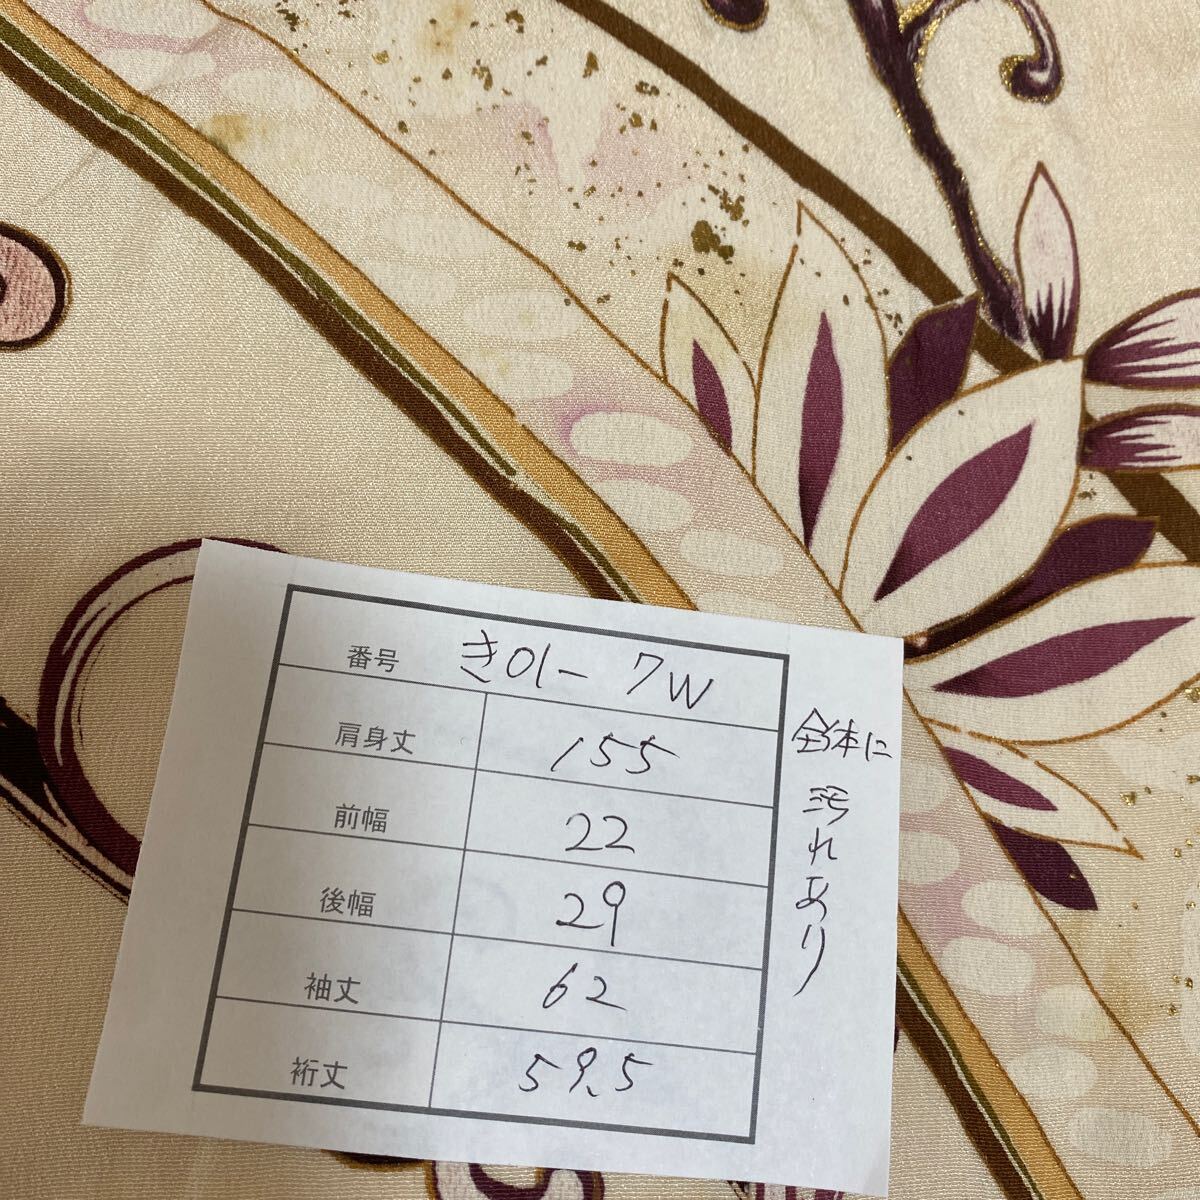 番号 き01-7W
肩身丈 155
前幅 22
後幅 29
袖丈 62
裄丈 59.5
全体に
汚れあり